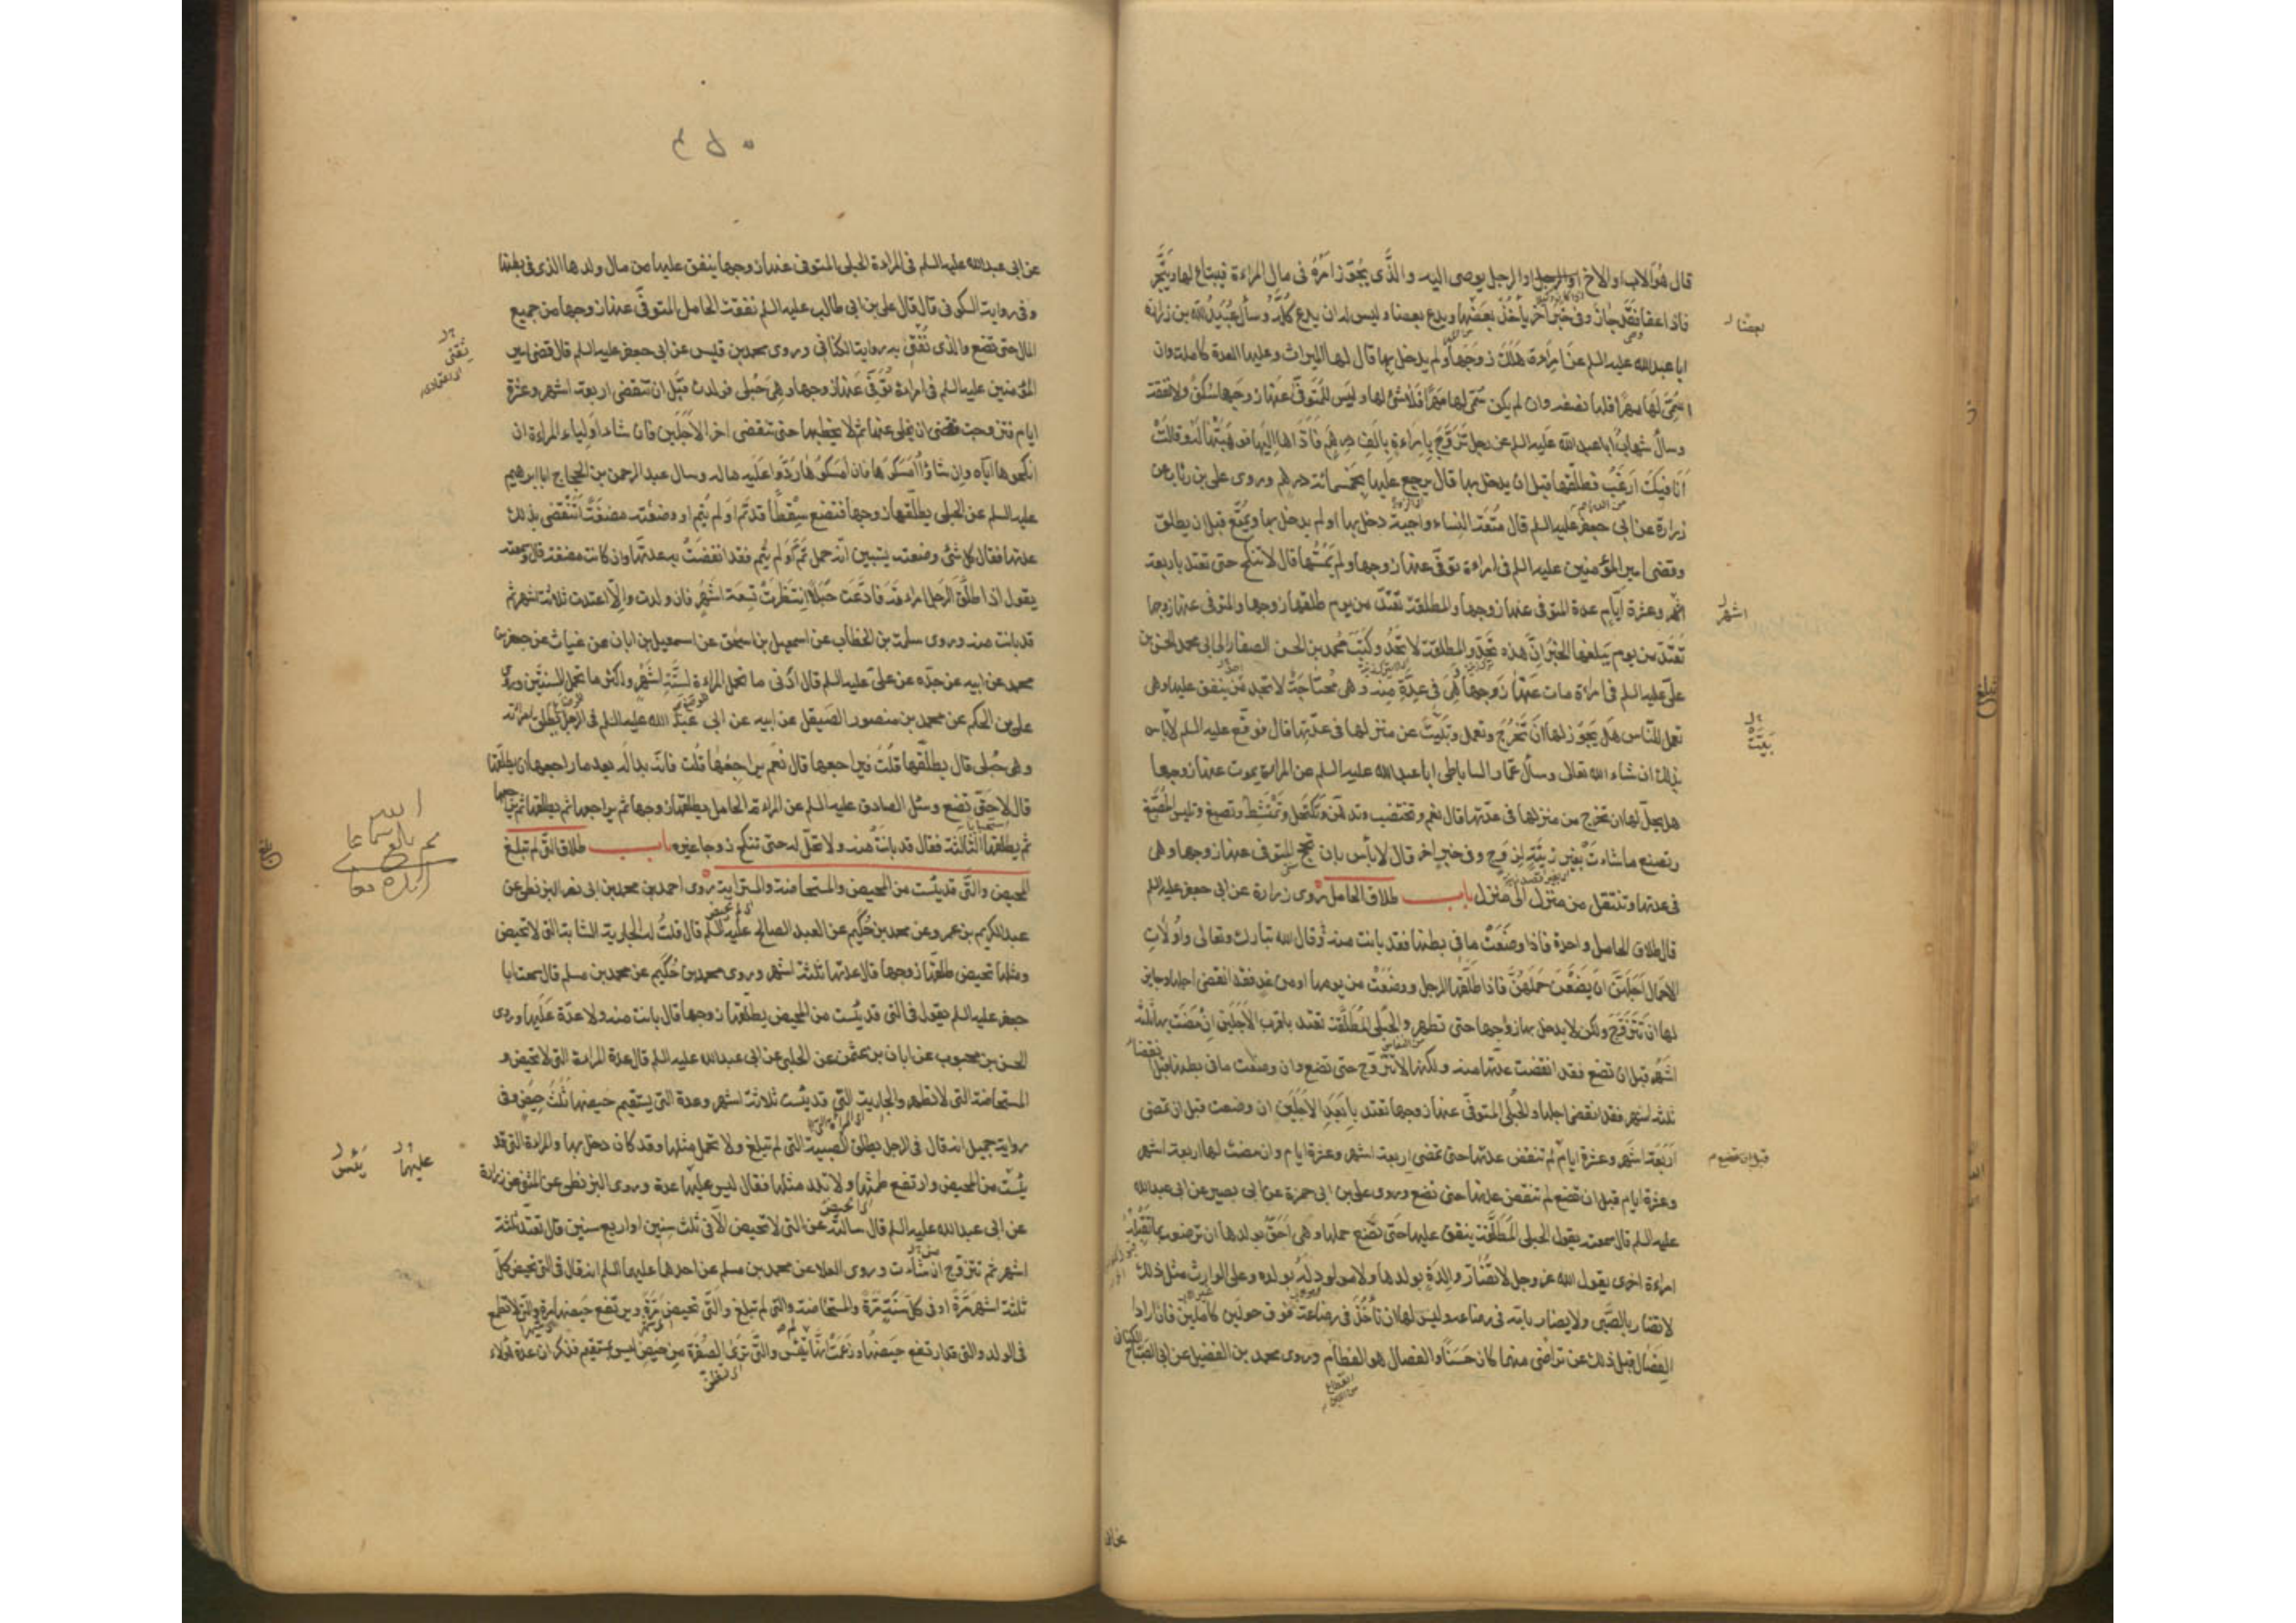 قال هو الاب او الاخ او الرجل يوصى اليه والذى يجوز امره فى مال المراءة فيبتاع لها ويتجر
فاذا عفا فقد جاز وفى خبر اخر يأخذ بعضها ويدع بعضا وليس له ان يدع كله وسأل عبيد الله بن زرارة
ابا عبد الله عليه السلم عن امراءة هلك زوجها ولم يدخل بها قال لها الميراث وعليها العدة كاملة وان
سمى لها مهرا فلها نصفه وان لم يكن سمى لها مهرا فلا شئ لها وليس للمتوفى عنها زوجها سكنى ولا نفقة
وسأل شهاب ابا عبد الله عليه السلم عن رجل تزوج بامراءة بالف درهم فاداها اليها فوهبتها له وقالت
انا فيك ارغب فطلقها قبل ان يدخل بها قال يرجع عليها بخمسمائة درهم وروى على بن رئاب عن
زرارة عن ابى جعفر عليه السلم قال متعة النساء واجبة دخل بها او لم يدخل بها ويمتع قبل ان يطلق
وقضى امير المؤمنين عليه السلم فى امراءة توفى عنها زوجها ولم يمسها قال لا تنكح حتى تعتد باربعة
اشهر وعشرة ايام عدة المتوفى عنها زوجها والمطلقة تعتد من يوم طلقها زوجها والمتوفى عنها زوجها
تعتد من يوم يبلغها الخبر ان هذه تحد والمطلقة لا تحد وكتب محمد بن الحسن الصفار الى ابى محمد الحسن بن
على عليه السلم فى امراءة مات عنها زوجها وهى فى عدة منه وهى محتاجة لا تجد من ينفق عليها وهى
تعمل للناس هل يجوز لها ان تخرج وتعمل وتبيت عن منزلها فى عدتها قال فوقع عليه السلم لا بأس
بذلك ان شاء الله تعالى وسأل عمار الساباطى ابا عبد الله عليه السلم عن المراءة يموت عنها زوجها
هل يحل لها ان تخرج من منزلها فى عدتها قال نعم وتختضب وتدهن وتكتحل وتمتشط وتصبغ وتلبس المصبغ
وتصنع ما شاءت بغير زينة لزوج وفى خبر اخر قال لا بأس بان تحج المتوفى عنها زوجها وهى
فى عدتها وتنتقل من منزل الى منزل باب طلاق الحامل روى زرارة عن ابى جعفر عليه السلم
قال طلاق الحامل واحدة فاذا وضعت ما فى بطنها فقد بانت منه وقال الله تبارك وتعالى واولات
الاحمال اجلهن ان يضعن حملهن فاذا طلقها الرجل ووضعت من يومها او من غد فقد انقضى اجلها وجايز
لها ان تتزوج ولكن لا يدخل بها زوجها حتى تطهر والحبلى المطلقة تعتد باقرب الاجلين ان مضت بها ثلثة
اشهر قبل ان تضع فقد انقضت عدتها منه ولكنها لا تتزوج حتى تضع وان وضعت ما فى بطنها قبل
ثلثة اشهر فقد انقضى اجلها والحبلى المتوفى عنها زوجها تعتد بابعد الاجلين ان وضعت قبل ان تمضى
اربعة اشهر وعشرة ايام لم تنقض عدتها حتى تمضى اربعة اشهر وعشرة ايام وان مضت لها اربعة اشهر
وعشرة ايام قبل ان تضع لم تنقض عدتها حتى تضع وروى على بن ابى حمزة عن ابى بصير عن ابى عبد الله
عليه السلم قال سمعته يقول الحبلى المطلقة ينفق عليها حتى تضع حملها وهى احق بولدها ان ترضعه بما تقبله
امراءة اخرى يقول الله عز وجل لا تضار والدة بولدها ولا مولود له بولده وعلى الوارث مثل ذلك
لا تضار بالصبى ولا يضار بابنه فى رضاعه وليس لها ان تأخذ فى رضاعه فوق حولين كاملين فان ارادا
الفصال قبل ذلك عن تراض منهما كان حسنا والفصال هو الفطام وروى محمد بن الفضيل عن ابى الصباح الكنانى
بعضا
اشهر
تبيت
قبل ان تضع
عن ابى عبد الله عليه السلم فى المراءة الحبلى المتوفى عنها زوجها ينفق عليها من مال ولدها الذى فى بطنها
وفى رواية السكونى قال قال على بن ابى طالب عليه السلم نفقة الحامل المتوفى عنها زوجها من جميع
المال حتى تضع والذى نفتى به رواية الكنانى وروى محمد بن قيس عن ابى جعفر عليه السلم قال قضى امير
المؤمنين عليه السلم فى امراءة توفى عنها زوجها وهى حبلى فولدت قبل ان تنقضى اربعة اشهر وعشرة
ايام فتزوجت فقضى ان يخلى عنها ثم لا يخطبها حتى تنقضى اخر الاجلين فان شاء اولياء المراءة ان
انكحوها اياه وان شاؤا امسكوها فان امسكوها ردوا عليه ماله وسال عبد الرحمن بن الحجاج ابا ابرهيم
عليه السلم عن الحبلى يطلقها زوجها فتضع سقطا قد تم او لم يتم او وضعته مضغة اتنقضى بذلك
عدتها فقال كل شئ وضعته يستبين انه حمل تم او لم يتم فقد انقضت به عدتها وان كانت مضغة قال وسمعته
يقول اذا طلق الرجل امراءته فادعت حبلا انتظرت تسعة اشهر فان ولدت والا اعتدت ثلاثة اشهر ثم
قد بانت منه وروى سلمة بن الخطاب عن اسمعيل بن اسحق عن اسمعيل بن ابان عن غياث عن جعفر بن
محمد عن ابيه عن جده عن على عليه السلم قال ادنى ما تحمل المراءة لستة اشهر واكثر ما تحمل لسنتين وروى
على بن الحكم عن محمد بن منصور الصيقل عن ابيه عن ابى عبد الله عليه السلم فى الرجل يطلق امرأته
وهى حبلى قال يطلقها قلت فيراجعها قال نعم يراجعها قلت فانه بدا له بعد ما راجعها ان يطلقها
قال لا حتى تضع وسئل الصادق عليه السلم عن المراءة الحامل يطلقها زوجها ثم يراجعها ثم يطلقها ثم يراجعها
ثم يطلقها الثالثة فقال قد بانت منه ولا تحل له حتى تنكح زوجا غيره باب طلاق التى لم تبلغ
المحيض والتى قد يئست من المحيض والمستحاضة والمسترابة روى احمد بن محمد بن ابى نصر البزنطى عن
عبد الكريم بن عمرو عن محمد بن حكيم عن العبد الصالح عليه السلم قال قلت له الجارية الشابة التى لا تحيض
ومثلها تحيض طلقها زوجها قال عدتها ثلثة اشهر وروى محمد بن حكيم عن محمد بن مسلم قال سمعت ابا
جعفر عليه السلم يقول فى التى قد يئست من المحيض يطلقها زوجها قال بانت منه ولا عدة عليها وروى
الحسن بن محبوب عن ابان بن عثمن عن الحلبى عن ابى عبد الله عليه السلم قال عدة المراءة التى لا تحيض و
المستحاضة التى لا تطهر والجارية التى قد يئست ثلاثة اشهر وعدة التى يستقيم حيضها ثلث حيض وفى
رواية جميل انه قال فى الرجل يطلق الصبية التى لم تبلغ ولا تحمل مثلها وقد كان دخل بها والمراءة التى قد
يئست من المحيض وارتفع طمثها ولا تلد مثلها فقال ليس عليها عدة وروى البزنطى عن المثنى عن زرارة
عن ابى عبد الله عليه السلم قال سالته عن التى لا تحيض الا فى ثلث سنين او اربع سنين قال تعتد ثلثة
اشهر ثم تتزوج ان شاءت وروى العلا عن محمد بن مسلم عن احدهما عليهما السلم انه قال فى التى تحيض كل
ثلثة اشهر مرة او فى كل سنة مرة والمستحاضة والتى لم تبلغ والتى تحيض مرة ويرتفع حيضها مرة والتى لا تطمع
فى الولد والتى قد ارتفع حيضها وزعمت انها لم تيئس والتى ترى الصفرة من حيض ليس بمستقيم فذكر ان عدة هؤلاء
نفتى
عليهما
يئس